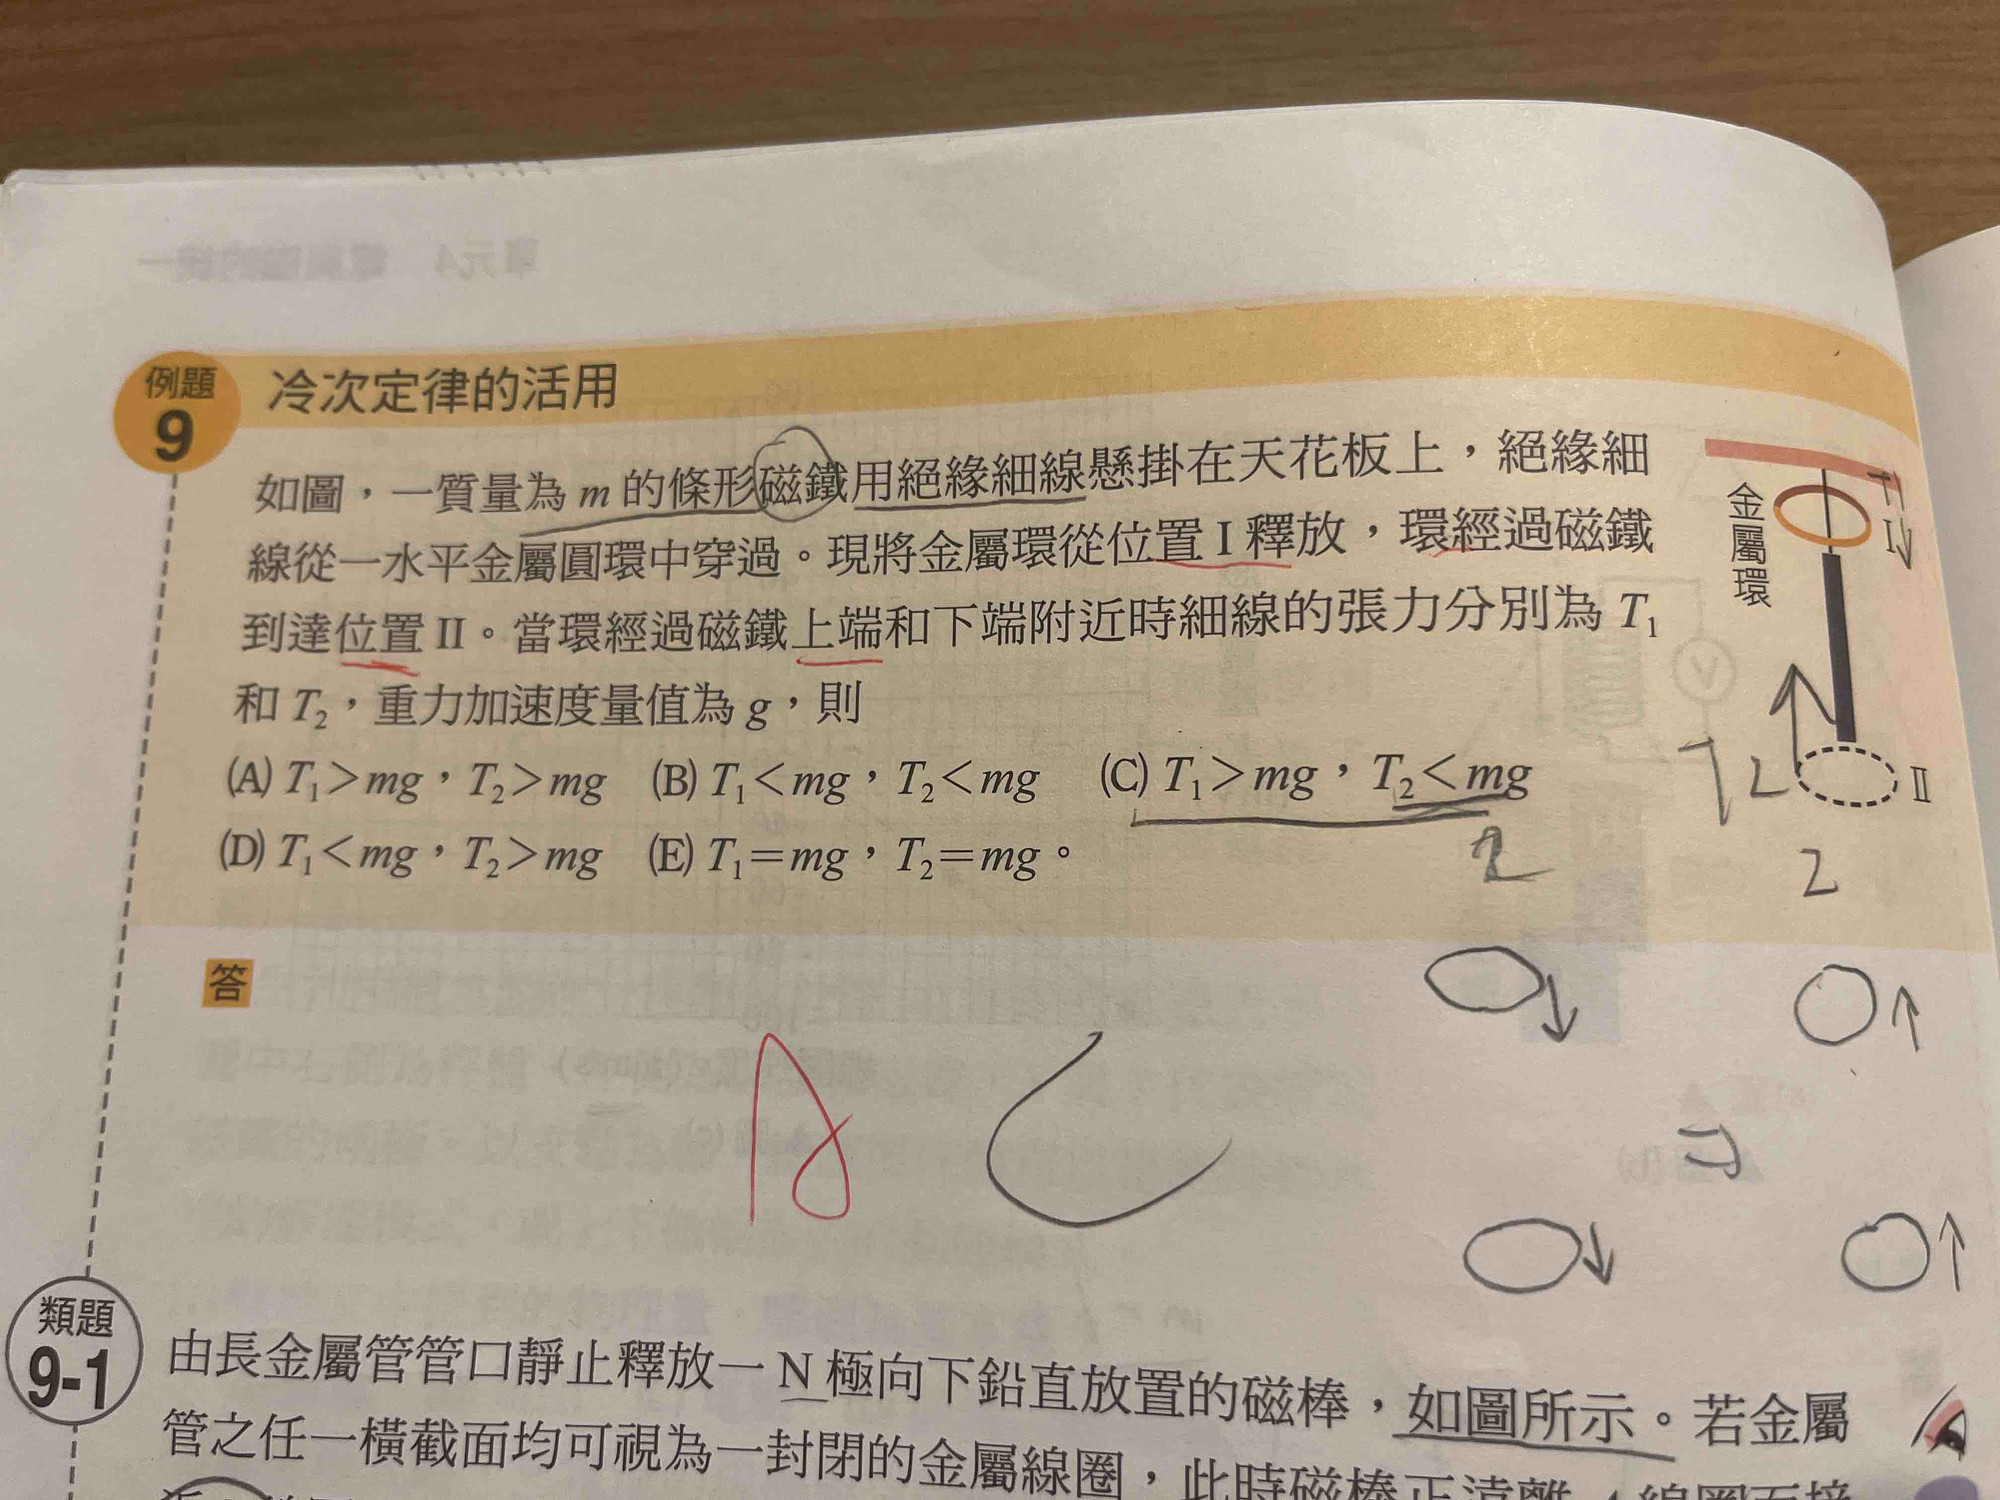 例題
9
冷次定律的活用
如圖，一質量為 m 的條形磁鐵用絕緣細線懸掛在天花板上，絕緣細
線從一水平金屬圓環中穿過。現將金屬環從位置 I 釋放，環經過磁鐵
到達位置 II。當環經過磁鐵上端和下端附近時細線的張力分別為 T₁
和 T₂，重力加速度量值為 g，則
(A) T₁＞mg，T₂＞mg (B) T₁＜mg，T₂＜mg (C) T₁＞mg，T₂＜mg
(D) T₁＜mg，T₂＞mg (E) T₁＝mg，T₂＝mg。
金屬環
I
II
2
2
答
A C
類題
9-1
由長金屬管管口靜止釋放一 N 極向下鉛直放置的磁棒，如圖所示。若金屬
管之任一橫截面均可視為一封閉的金屬線圈，此時磁棒正遠離